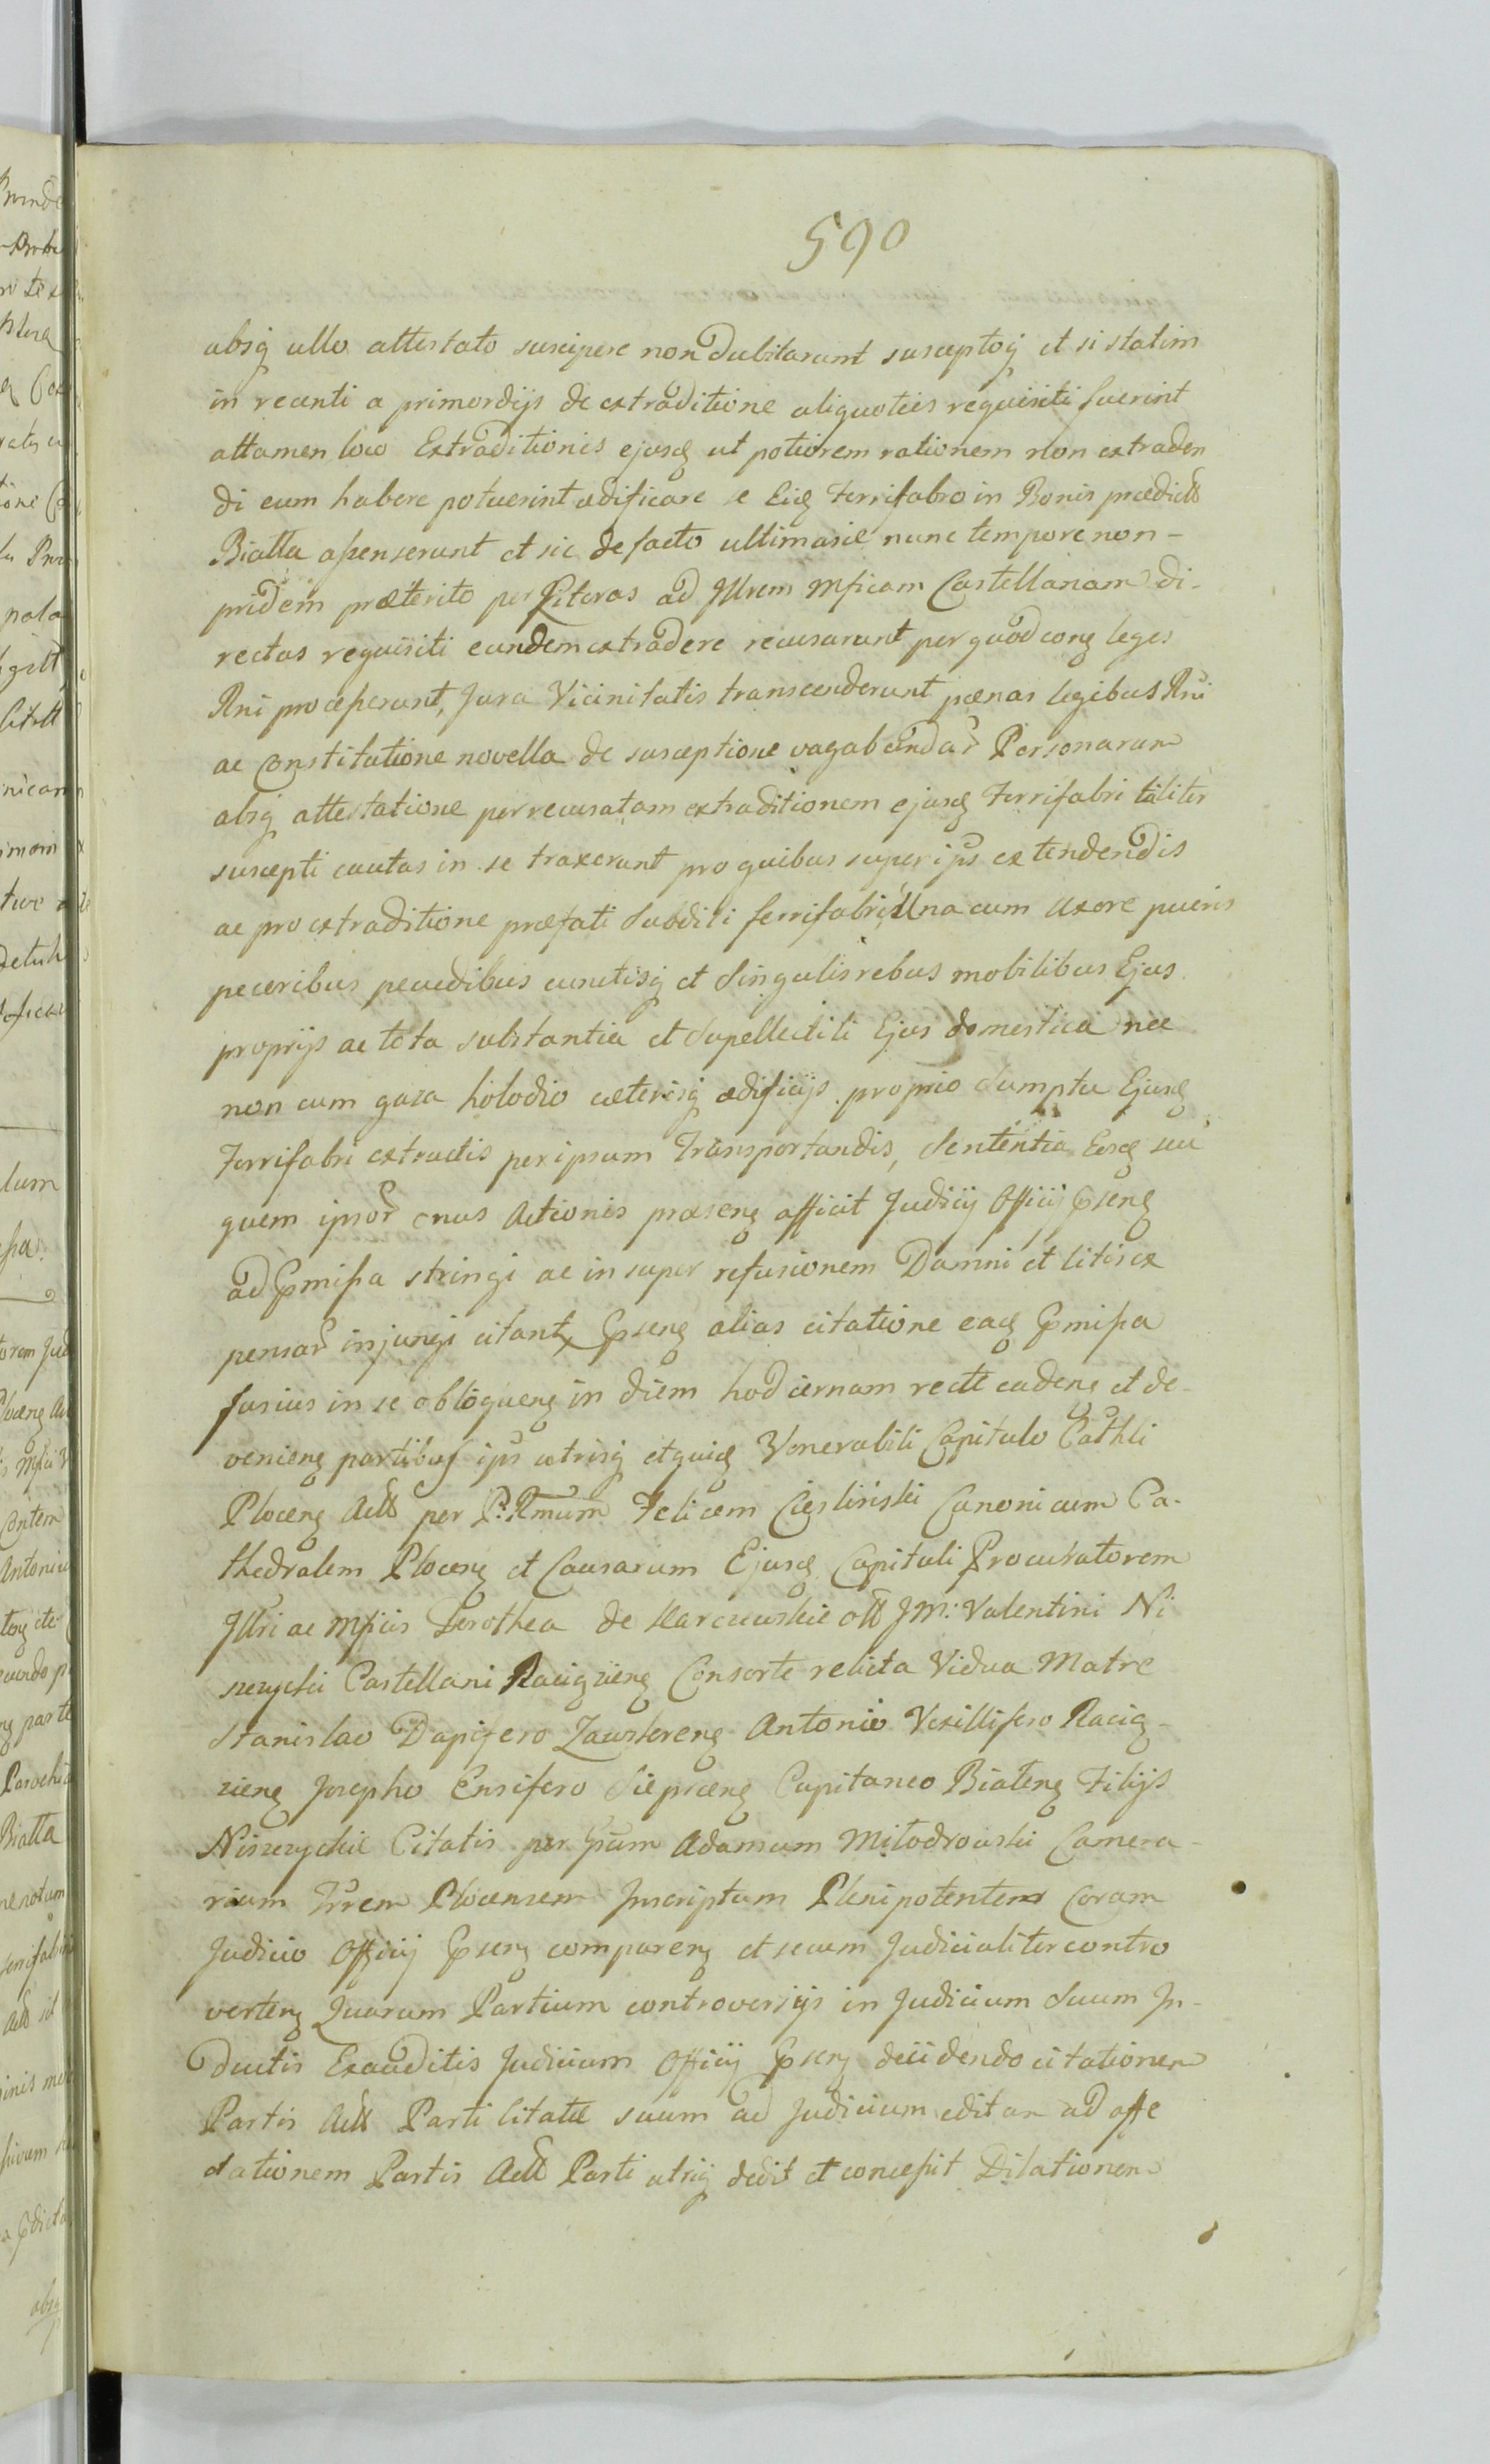 590
absq ullo attestato suscipere non dubitarunt susceptoq et si statim
in recenti a primordijs de extraditione aliquoties requisiti fuerint
attamen loco Extraditionis ejusq ut potiorem rationem non extraden
di eum habere potuerint ædificare se Eiq Ferrifabro in Bonis prædictt
Biatta assenserunt et sic de facto ultimarie nunc tempore non-
pridem præterito per Literas ad Jllrem Mficam Castellanam di-
rectas requisiti eundem extradere recusarunt per quod cong leges
Rni processerunt, Jura Vicinitatis transcenderunt pœnas legibus Rni
ac Constitutione novella de susceptione vagabundar Personarum
absq attestatione per recusatam extraditionem ejusq Ferrifabri taliter
suscepti cautas in se traxerunt pro quibus super ips extendendis
ac pro extraditione præfati Subditi ferrifabri, Una cum Uxore pueris
pecoribus pecudibus cunctisq et Singulis rebus mobilibus Ejus
proprijs ac tota substantia et Supellectili Ejus domestica nec
non cum gaza holodio cæterisq ædificijs proprio Sumptu Ejusq
Ferrifabri extructis per ipsum Transportandis, Sententia Eosq seu
quem ipsor onus Actionis præseng afficit Judicij Officij pseng
ad pmissa stringi ac in super refusionem Damni et litis ex
pensar injungi citant, pseng alias citatione eaq pmissa
fusius in se obloqueng in diem hodiernam recte cadeng et de-
venieng partibus ips utrisq et quiq Venerabili Capitulo Cathli
Ploceng Actt per P: Rmum Felicem Cieslinski Canonicum Ca-
thedralem Ploceng et Causarum Ejusq Capituli Procuratorem
Jllri ac Mficis Dorothea de Karczewskie ott JM: Valentini Ni
szczycki Castellani Raciązieng Consorte relicta Vidua Matre
Stanislao Dapifero Zawskreng Antonio Vexillifero Raciq-
zieng Josepho Ensifero Sieprceng Capitaneo Biateng Filijs
Niszczyckie Citatis per Gsum Adamum Mitodrowski Camera-
rium Trrem Plocensem Inscriptum Plenipotentem Coram
Judicio Officij pseng compareng et secum Judicialiter contro
verteng Quarum Partium controversijs in Judicium Suum In-
ductis Exauditis Judicium Officij pseng decidendo citationem
Partis Actt Parti Citatæ suum ad Judicium edit an ad affe
ctationem Partis Actt Parti utriq dedit et concessit Dilationem